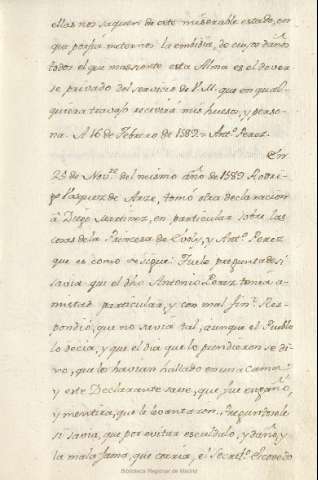 ellas nos saquen de este miserable estado, en
que por su methornos la embidia, de cuyos daños
todos el que mas siente esta Alma es el dever
se privado del servicio de V.M. que en qual
quiera travajo recivirá mis huesos, y perso
na. A 16 de Febrero de 1589 Antº Perez.
En
25 de Novre del mismo año de 1589 Rodri
go Vazquez de Arze, tomó otra declaracion
à Diego Martinez, en particular sobre las
cosas de la Princesa de Evoly, y Antº Perez
que es como se sigue. Fuele preguntado si
savia que el dho Antonio Perez tenia a
mistad particular, y con mal fin. Res
pondió, que no savia tal, aunque el Pueblo
lo decia, y que el dia que lo prendieron se di
xo, que lo havian hallado en una cama
y este Declarante save, que fue engaño,
y mentira, que le levantaron. Preguntosele
si savia, que por evitar escandalo, y daño, y
la mala fama, que corria, el Secretº Escovedo
Biblioteca Regional de Madrid